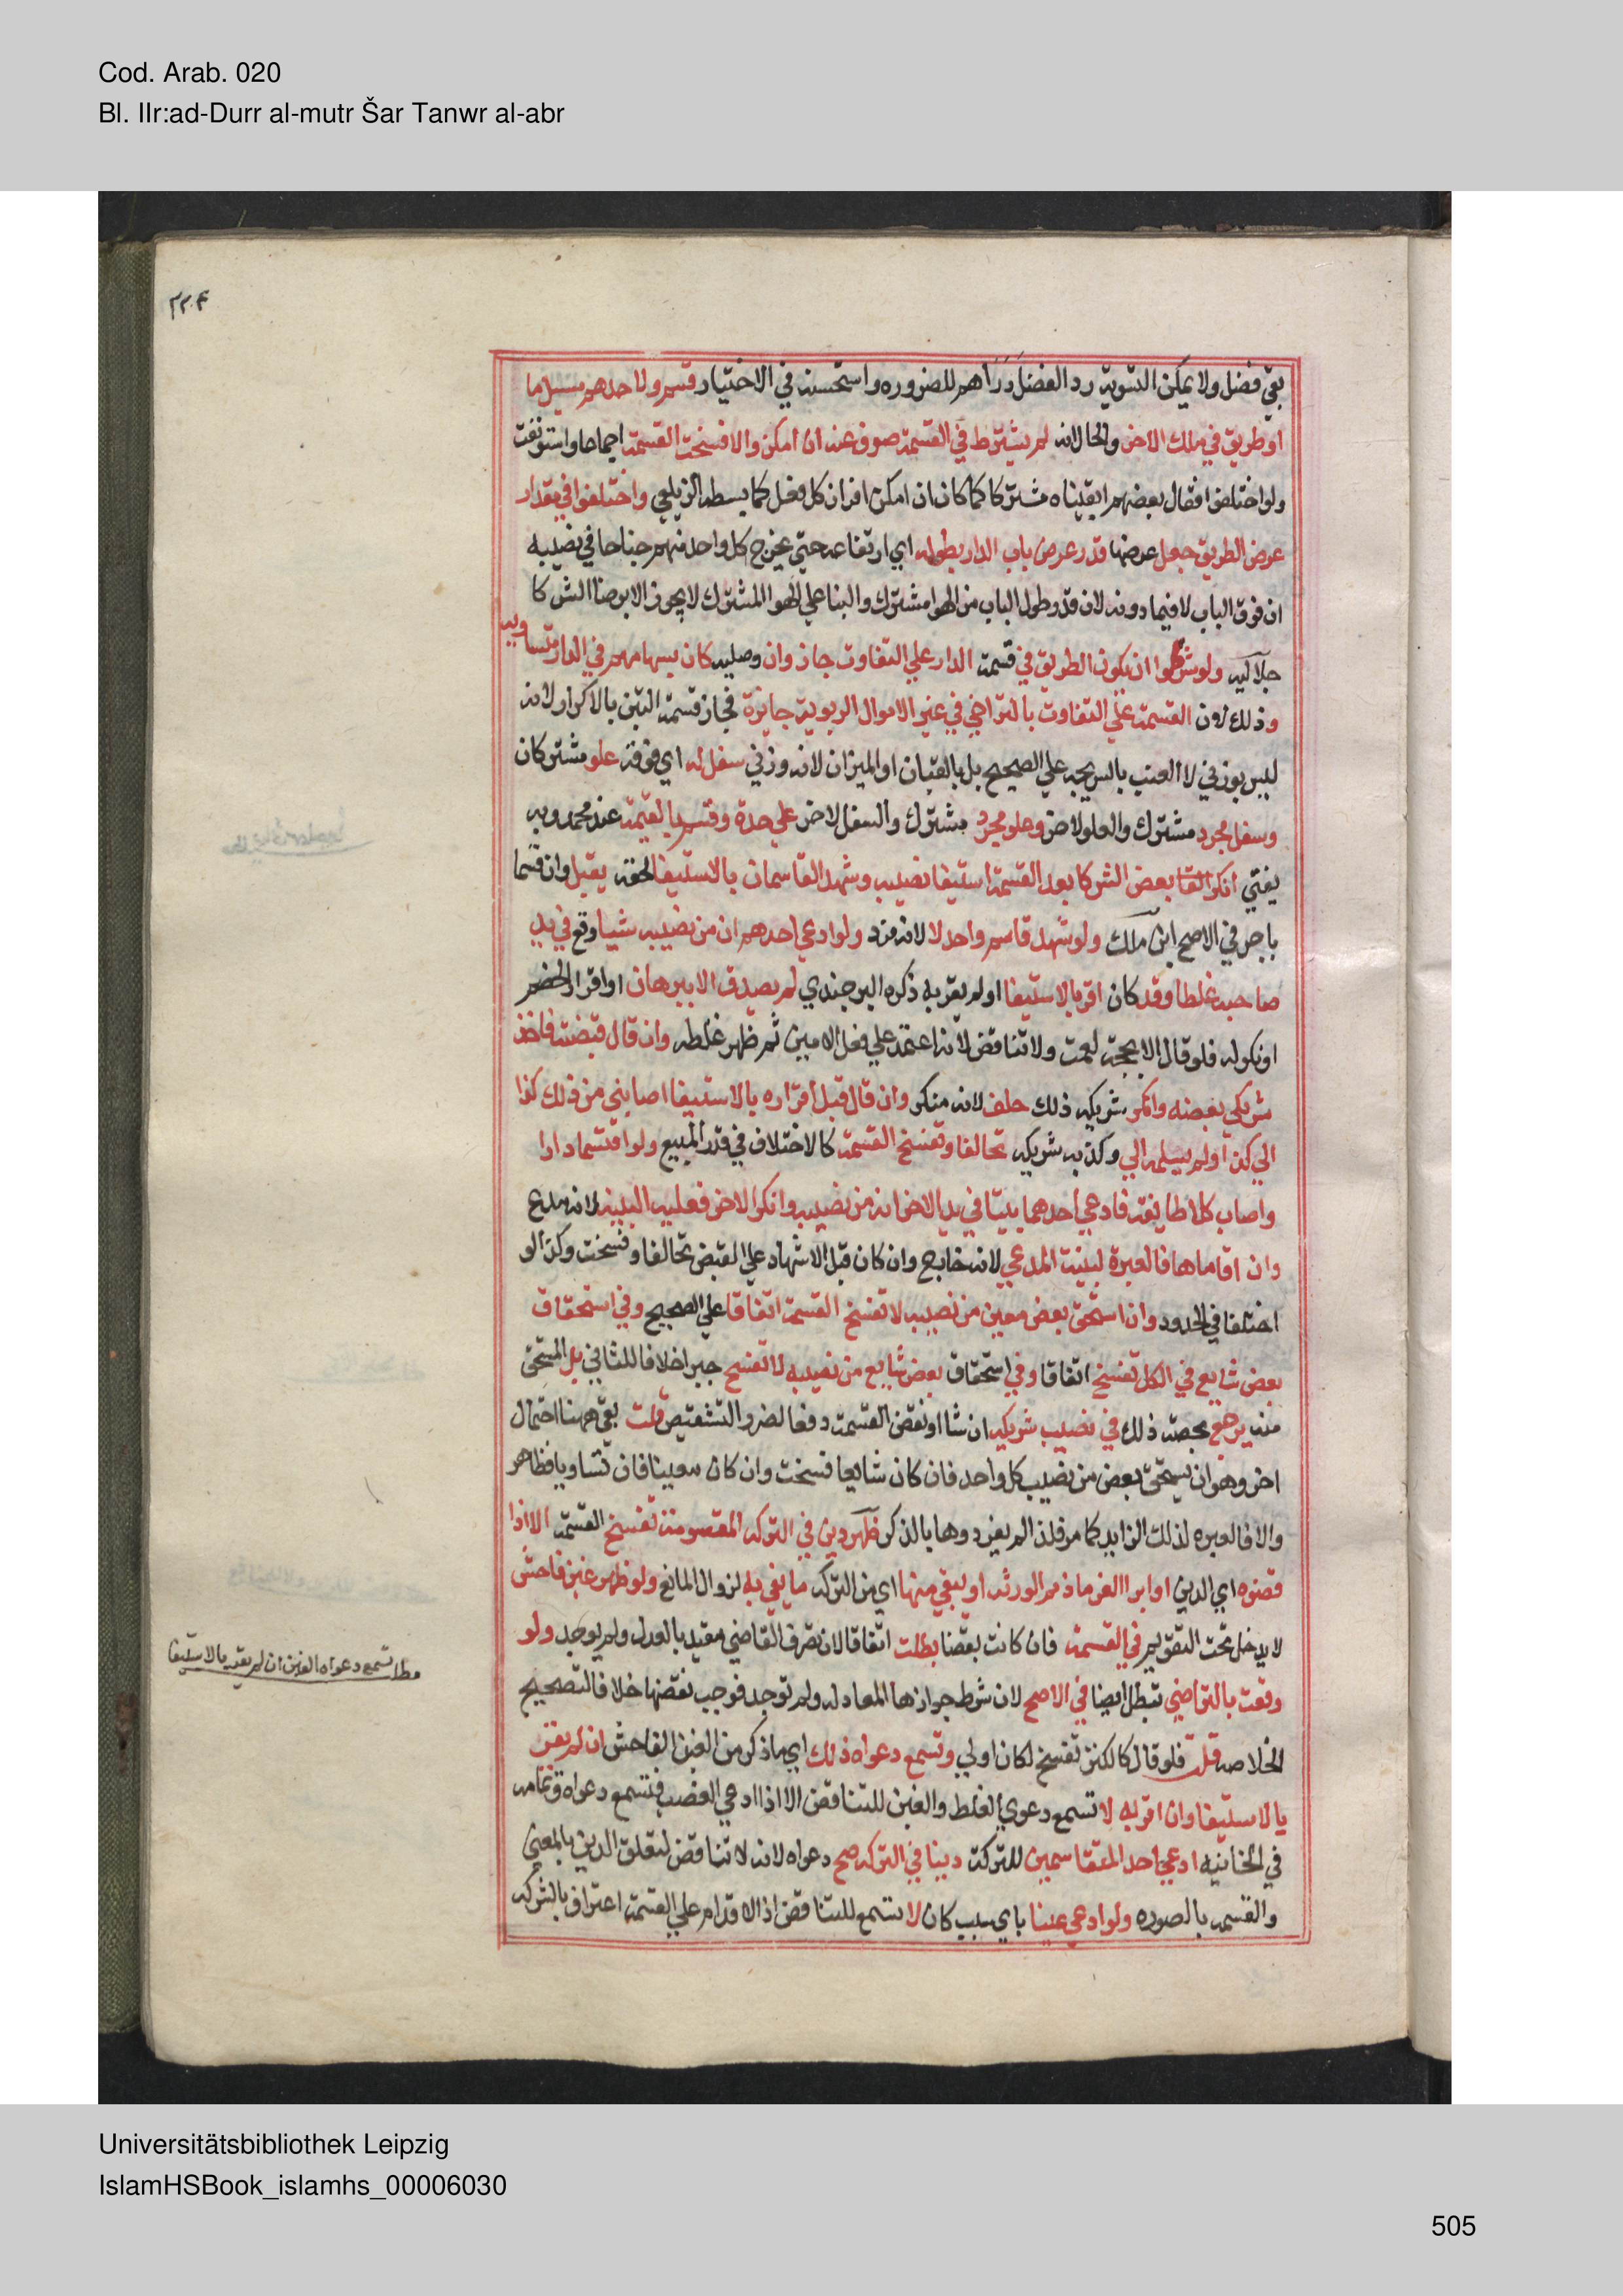 Cod. Arab. 020
Bl. IIr:ad-Durr al-mutr Šar Tanwr al-abr
بقي فضل ولا يمكن التسوية رد الفضل دراهم للضروره واستحسنه في الاختيار قسم ولاحدهم مسيل ما
او طريق في ملك الاخر والحال انه لم يشترط في القسمة صرف عنه ان امكن والا فسخت القسمة اجماعا واستونفت
ولو اختلفوا فقال بعضهم ابقيناه مشتركا كما كان ان امكن افراز كل فعل كما بسطه الزيلعي واختلفوا في مقدار
عرض الطريق جعل عرضها قدر عرض باب الدار بطوله اي ارتفاعه حتي يخرج كل واحد منهم جناحا في نصيبه
ان فوق الباب لا فيما دونه لان قدر طول الباب من الهوا مشترك والبنا علي الهوا المشترك لا يجوز الا برضا الشركا
جلاليه ولو شرطوا ان يكون الطريق في قسمة الدار علي التفاوت جاز وان وصليه كان سهامهم في الدار متساويه
وذلك لان القسمة علي التفاوت بالتراضي في غير الاموال الربوية جايزة فجاز قسمة التبن بالاكرار لانه
ليس بوزني لا العنب بالسريجه علي الصحيح بل بالقبان او الميزان لانه وزني سفل له اي فوقه علو مشتركان
وسفل مجرد مشترك والعلو لاخر وعلو مجرد مشترك والسفل لاخر علي حدة وقسم بالقيمة عند محمد وبه
يفتي انكر بعض الشركا بعد القسمة استيفا نصيبه وشهد القاسمان بالاستيفا لحقه يقبل وان قسما
باجر في الاصح ابن ملك ولو شهد قاسم واحد لا لانه فرد ولو ادعي احدهم ان من نصيبه شيا وقع في يد
صاحبه غلطا وقد كان اقر بالاستيفا او لم يقر به ذكره البرجندي لم يصدق الا ببرهان او اقرار الخصم
او نكوله فلو قال الا بحجة لعمت ولا تناقض لانه اعتمد علي فعل الامين ثم ظهر غلطه وان قال قبضته فاخذ
شريكي بعضه وانكر شريكه ذلك حلف لانه منكر وان قال قبل اقراره بالاستيفا اصابني من ذلك كذا
الي كذا ولم يسلمه الي وكذبه شريكه تحالفا وتفسخ القسمة كالاختلاف في قدر المبيع ولو اقتسما دارا
واصاب كلا طايفة فادعي احدهما بيتا في يد الاخر انه من نصيبه وانكر الاخر فعليه البينه لانه مدع
وان اقاماها فالعبرة لبينة المدعي لانه خارج وان كان قبل الاشهاد علي القبض تحالفا وفسخت وكذا لو
اختلفا في الحدود وان استحق بعض معين من نصيبه لا تفسخ القسمة اتفاقا علي الصحيح وفي استحقاق
بعض شايع في الكل تفسخ اتفاقا وفي استحقاق بعض شايع من نصيبه لا تفسخ جبرا خلافا للثاني بل المستحق
منه يرجع بحصة ذلك في نصيب شريكه ان شا او نقض القسمة دفعا لضرر التشقيص قلت بقي ههنا احتمال
اخر وهو ان يستحق بعض من نصيب كل واحد فان كان شايعا فسخت وان كان معينا فان تساويا فظاهر
والا فالعبره لذلك الزايد كما مر فلذا لم يفردوها بالذكر ظهر دين في التركه المقسومة تفسخ القسمة الا اذا
قضوه اي الدين او ابرا الغرما ذمم الورثه او يبقي منها اي من التركه ما يفي به لزوال المانع ولو ظهر غبن فاحش
لا يدخل تحت التقويم في القسمة فان كانت بقضا بطلت اتفاقا لان تصرف القاضي مقيد بالعدل ولم يوجد ولو
وقعت بالتراضي تبطل ايضا في الاصح لان شرط جوازها المعادله ولم توجد فوجب نقضها خلافا لتصحيح
الخلاصه قلت فلو قال كالكنز تفسخ لكان اولي وتسمع دعواه ذلك اي ما ذكر من الغبن الفاحش ان لم يقر
بالاستيفا وان اقر به لا تسمع دعوي الغلط والغبن للتناقض الا اذا ادعي الغصب فتسمع دعواه وتمامه
في الخانيه ادعي احد المتقاسمين للتركة دينا في التركه صح دعواه لانه لا تناقض لتعلق الدين بالمعني
والقسمه بالصوره ولو ادعي عينا باي سبب كان لا تسمع للتناقض اذ الاقدام علي القسمة اعتراف بالشركه
مط تسمع دعواه الغبن ان لم يقر بالاستيفا
Universitätsbibliothek Leipzig
IslamHSBook_islamhs_00006030
505